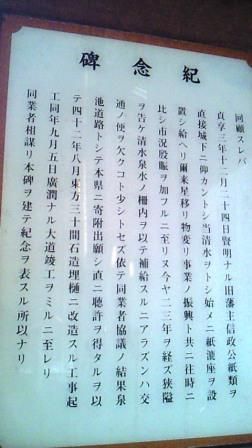 紀念碑
回顧スレバ
貞享三年十二月二十四日賢明ナル旧藩主信政公紙類ヲ
直接城下ニ仰カントシ当清水ヲトシ始メニ紙漉座ヲ設
置シ給ヘリ爾来星移リ物変リ事業ノ振興ト共ニ往時ニ
比シ市況殷賑ヲ加フルニ至リス今ヤ二三年ヲ経ズ狭隘
ヲ告ケ清水泉水ノ柵内ヲ以テ補給スルニアラズンハ交
通ノ便ヲ欠クコト少シトセズ依テ同業者協議ノ結果泉
池道路トシテ本県ニ寄附出願シ直ニ聴許ヲ得タルヲ以
テ四十二年八月東方三十間石造埋樋ニ改造スル工事起
工同年九月五日廣潤ナル大道竣工ヲミルニ至レリ
同業者相謀リ本碑ヲ建テ紀念ヲ表スル所以ナリ